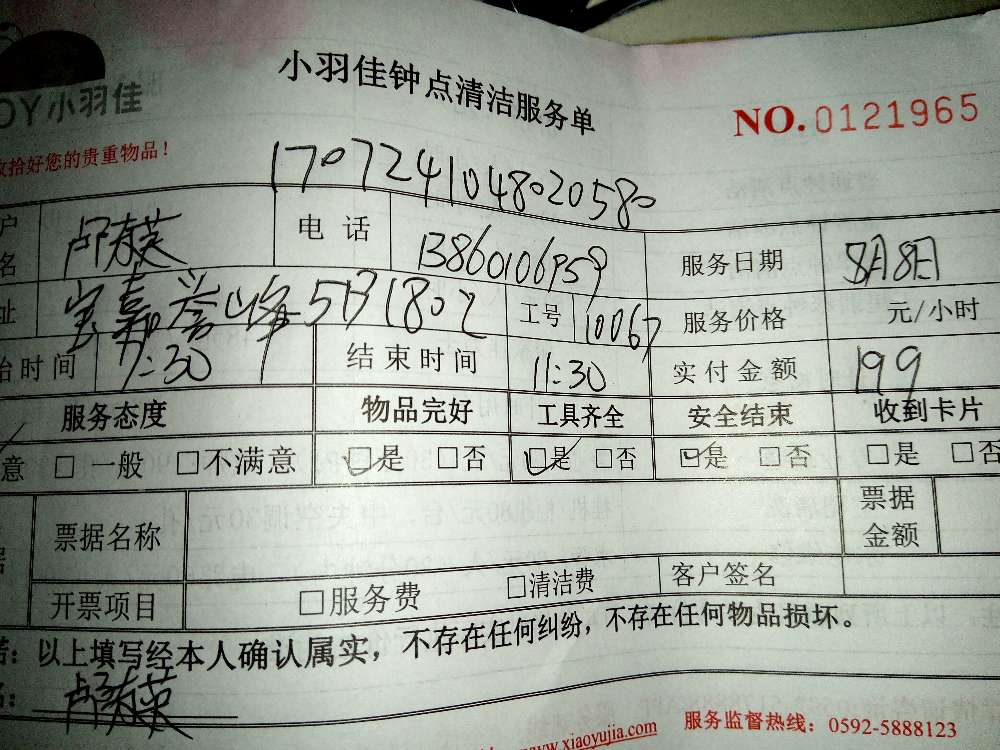 小羽佳钟点清洁服务单
OY小羽佳 NO.0121965
收拾好您的贵重物品！
1707241048020580
户名 卢春英 电话 13860106959 服务日期 8月8日
址 宝嘉誉峰5B1802 工号 10067 服务价格 元/小时
始时间 7:30 结束时间 11:30 实付金额 199
服务态度 物品完好 工具齐全 安全结束 收到卡片
意 □一般 □不满意 □是 □否 □是 □否 □是 □否 □是 □否
票据名称 票据金额
开票项目 □服务费 □清洁费 客户签名
诺：以上填写经本人确认属实，不存在任何纠纷，不存在任何物品损坏。
名：卢春英
www.xiaoyujia.com 服务监督热线：0592-5888123